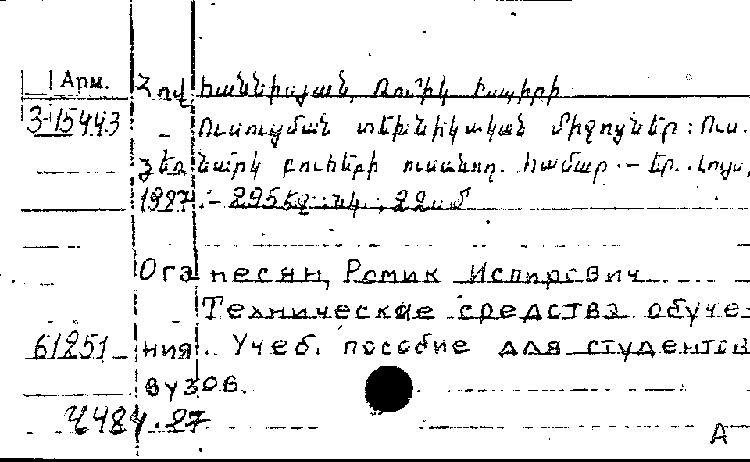 Арм. Հով հաննիսյան, Ռոմիկ Իսպիրի
3-15443 - Ուսուցման տեխնիկական միջոցներ: Ուս.
ձեռնարկ բուհերի ուսանող. համար.- Եր. Լույս,
1987.- 295 էջ: նկ.; 22 սմ
Оганесян, Ромик Испирович
Технические средства обуче-
61251 ния. Учеб. пособие для студентов
вузов.
4484.87
А